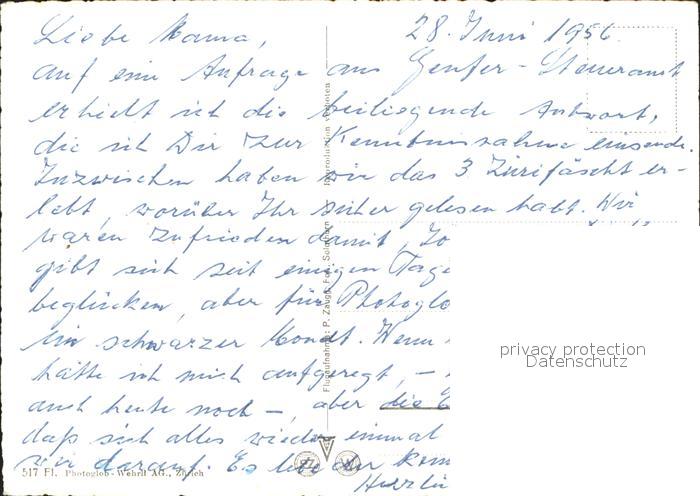 28. Juni 1956.
Liebe Mama,
auf eine Anfrage ans Genfer-Steueramt
erhielt ich die beiliegende Antwort,
die ich Dir zur Kenntnisnahme einsende.
Inzwischen haben wir das 3 Zürifäscht er-
lebt, worüber Ihr sicher gelesen habt. Wir
waren zufrieden damit,
gibt sich seit einigen Tage
beglücken, aber für Photoglo
ein schwarzer Monat. Wenn
hätte ich mich aufgeregt, –
auch heute noch –, aber die
daß sich alles wieder einmal
wir darauf. Es lebe der kom
Herzli
Flugaufnahme: P. Zaugg Fot. Solothurn
Reproduktion verboten
517 Fl. Photoglob-Wehrli AG., Zürich
privacy protection
Datenschutz